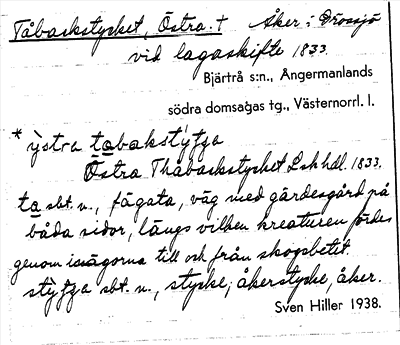 Tåbackstycket, Östra. † Åker i Drossjö
vid lagaskifte 1833.
Bjärtrå s:n., Ångermanlands
södra domsagas tg., Västernorrl. l.
* ỳstra tabakstýʃʒa
Östra Thåbackstycket Lskhdl. 1833.
ta sbt. n., fägata, väg med gärdesgård på
båda sidor, längs vilken kreaturen fördes
genom inägorna till och från skogsbetit.
stýʃʒa sbt. n., stycke, åkerstycke, åker.
Sven Hiller 1938.